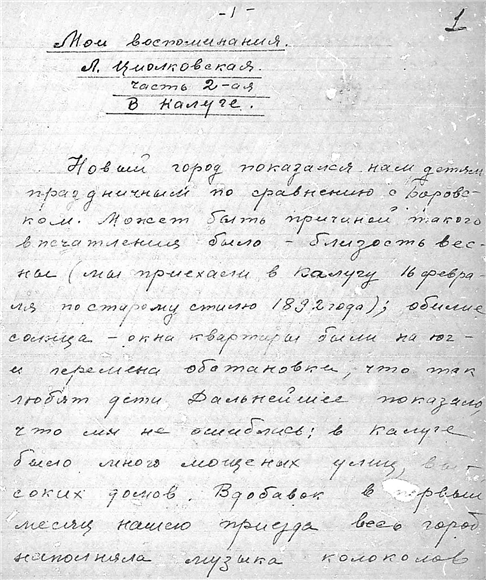 - 1 -
1
Мои воспоминания.
Л. Циолковская.
часть 2-ая
В Калуге.
Новый город показался нам детям
праздничным по сравнению с Боровс-
ком. Может быть причиной такого
впечатления было - близость вес-
ны (мы приехали в Калугу 16 февра-
ля по старому стилю 1892 года); обилие
солнца - окна квартиры были на юг -
и перемена обстановки, что так
любят дети. Дальнейшее показало
что мы не ошиблись: в Калуге
было много мощеных улиц, вы-
соких домов. Вдобавок в первый
месяц нашего приезда весь город
наполняла музыка колоколов